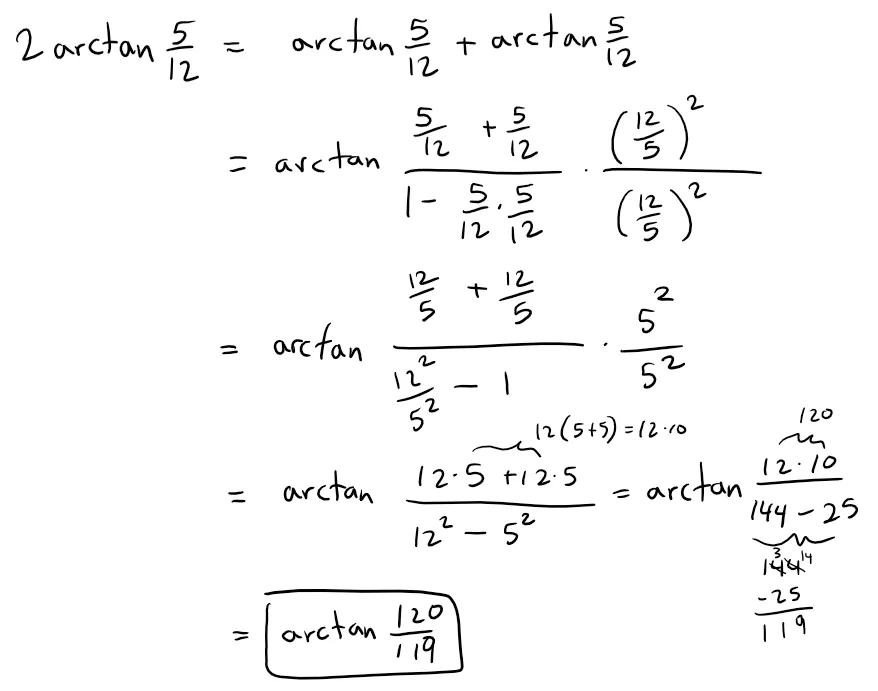 2 arctan 5/12 = arctan 5/12 + arctan 5/12
= arctan (5/12 + 5/12)/(1 - 5/12 · 5/12) · (12/5)^2/(12/5)^2
= arctan (12/5 + 12/5)/(12^2/5^2 - 1) · 5^2/5^2
12(5+5) = 12·10
120
= arctan (12·5 + 12·5)/(12^2 - 5^2) = arctan (12·10)/(144 - 25)
3 14
144
-25
119
= arctan 120/119